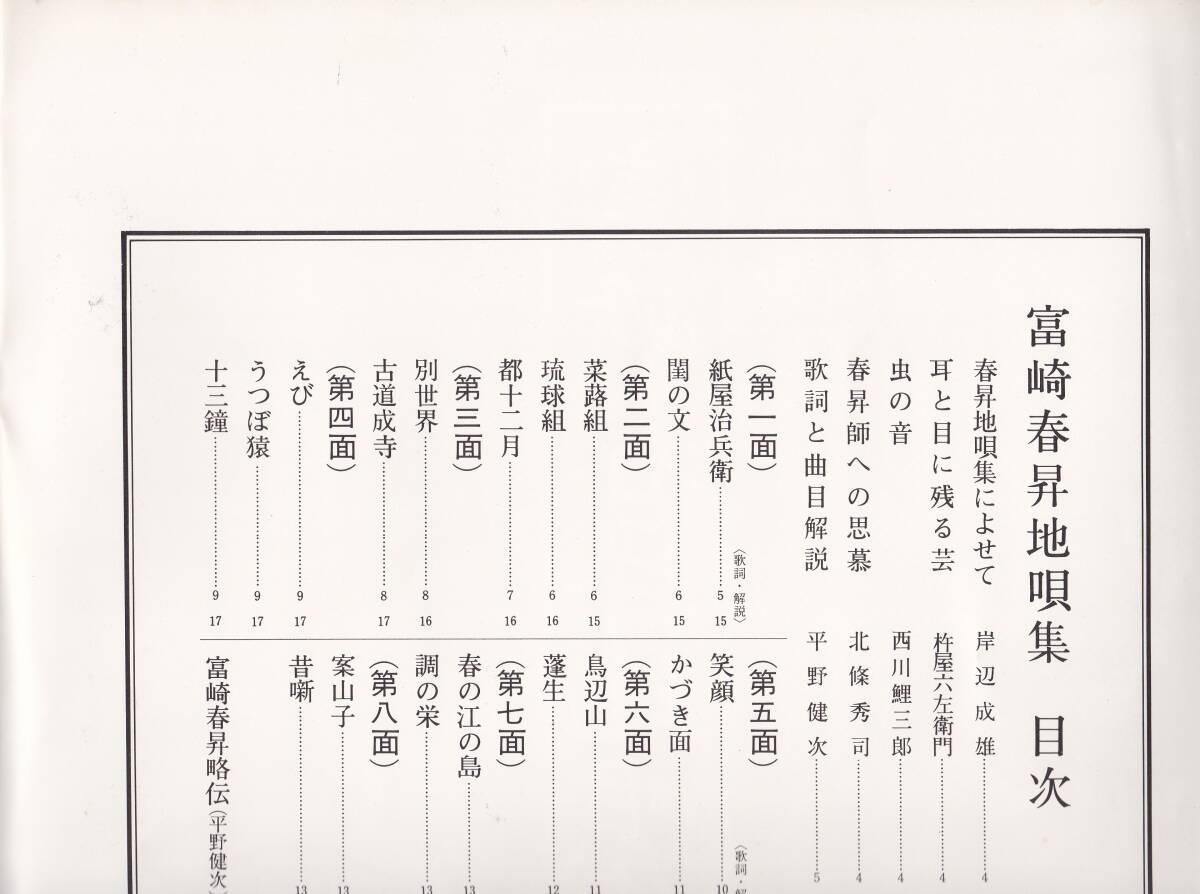 富崎春昇地唄集 目次
春昇地唄集によせて 岸辺成雄 4
耳と目に残る芸 杵屋六左衛門 4
虫の音 西川鯉三郎 4
春昇師への思慕 北條秀司 4
歌詞と曲目解説 平野健次 5
(第一面)
〈歌詞・解説〉
紙屋治兵衛 5 15
閨の文 6 15
(第二面)
菜蕗組 6 15
琉球組 6 16
都十二月 7 16
(第三面)
別世界 8 16
古道成寺 8 17
(第四面)
えび 9 17
うつぼ猿 9 17
十三鐘 9 17
(第五面)
〈歌詞・解
笑顔 10
かづき面 11
(第六面)
鳥辺山 11
蓬生 12
(第七面)
春の江の島 13
調の栄 13
(第八面)
案山子 13
昔噺 13
富崎春昇略伝(平野健次)